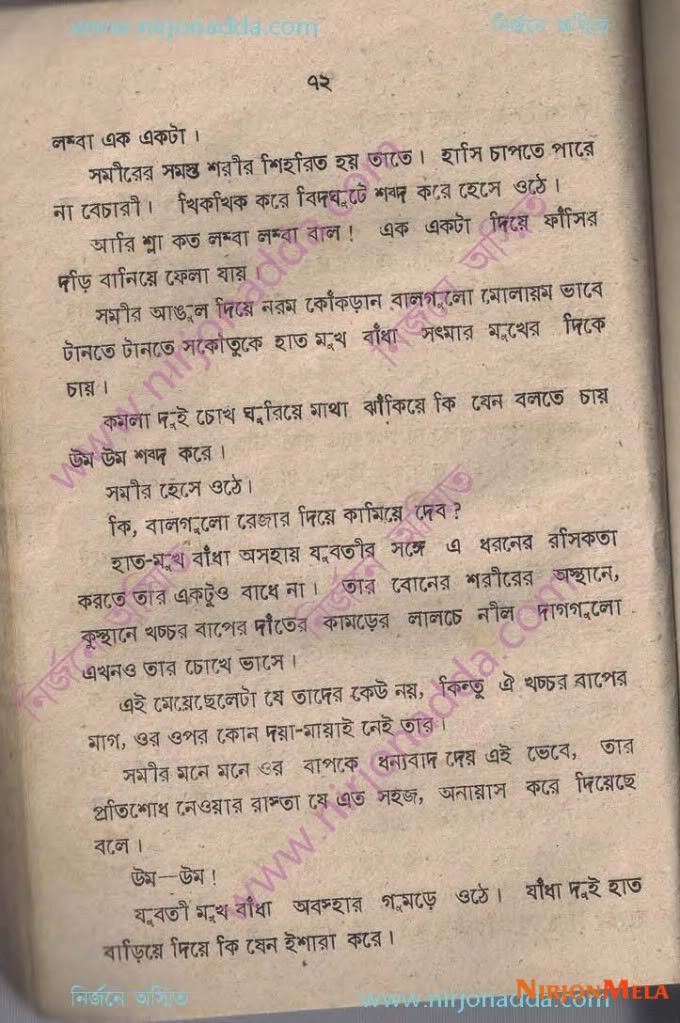 www.nirjonadda.com নির্জনে অস্মিত
৭২
লম্বা এক একটা ।
সমীরের সমস্ত শরীর শিহরিত হয় তাতে । হাসি চাপতে পারে
না বেচারী । খিকখিক করে বিদঘুটে শব্দ করে হেসে ওঠে ।
আরি শ্লা কত লম্বা লম্বা বাল ! এক একটা দিয়ে ফাঁসির
দড়ি বানিয়ে ফেলা যায় ।
সমীর আঙুল দিয়ে নরম কোঁকড়ান বালগুলো মোলায়ম ভাবে
টানতে টানতে সকৌতুকে হাত মুখ বাঁধা সৎমার মুখের দিকে
চায় ।
কমলা দুই চোখ ঘুরিয়ে মাথা ঝাঁকিয়ে কি যেন বলতে চায়
উম উম শব্দ করে ।
সমীর হেসে ওঠে ।
কি, বালগুলো রেজার দিয়ে কামিয়ে দেব ?
হাত-মুখ বাঁধা অসহায় যুবতীর সঙ্গে এ ধরনের রসিকতা
করতে তার একটুও বাধে না । তার বোনের শরীরের অস্থানে,
কুস্থানে খচ্চর বাপের দাঁতের কামড়ের লালচে নীল দাগগুলো
এখনও তার চোখে ভাসে ।
এই মেয়েছেলেটা যে তাদের কেউ নয়, কিন্তু ঐ খচ্চর বাপের
মাগ, ওর ওপর কোন দয়া-মায়াই নেই তার ।
সমীর মনে মনে ওর বাপকে ধন্যবাদ দেয় এই ভেবে, তার
প্রতিশোধ নেওয়ার রাস্তা যে এত সহজ, অনায়াস করে দিয়েছে
বলে ।
উম—উম !
যুবতী মুখ বাঁধা অবস্হার গুমড়ে ওঠে । বাঁধা দুই হাত
বাড়িয়ে দিয়ে কি যেন ইশারা করে ।
নির্জনে অস্মিত www.nirjonadda.com
NIRJONMELA
www.nirjonadda.com
নির্জনে অস্মিত
নির্জনে অস্মিত
নির্জনে অস্মিত
www.nirjonadda.com